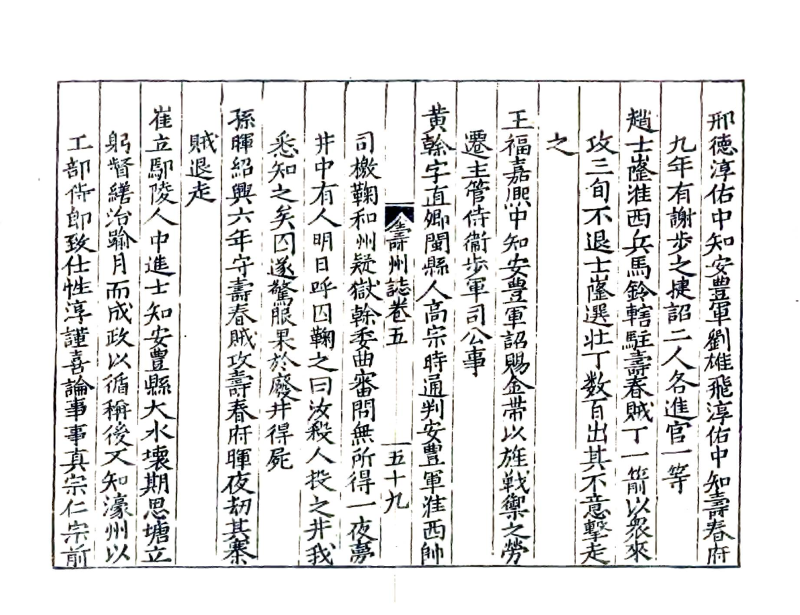 邢德淳佑中知安豊軍劉雄飛淳佑中知壽春府
九年有謝步之捷詔二人各進官一等
趙士㠉淮西兵馬鈐轄駐壽春賊丁一箭以衆來
攻三旬不退士㠉選壮丁数百出其不意擊走
之
王福嘉熈中知安豊軍詔賜金帯以旌戦禦之勞
遷主管侍衞步軍司公事
黄榦字直卿閩縣人髙宗時通判安豊軍淮西帥
壽州誌卷五
五十九
司檄鞠和州疑獄榦委曲審問無所得一夜夢
井中有人明日呼囚鞠之曰汝殺人投之井我
悉知之矣囚遂驚服果於廢井得屍
孫暉紹興六年守壽春賊攻壽春府暉夜劫其寨
賊退走
崔立鄢陵人中進士知安豊縣大水壞期思塘立
躬督繕治踰月而成政以循稱後又知濠州以
工部侍郎致仕性淳謹喜論事事真宗仁宗前